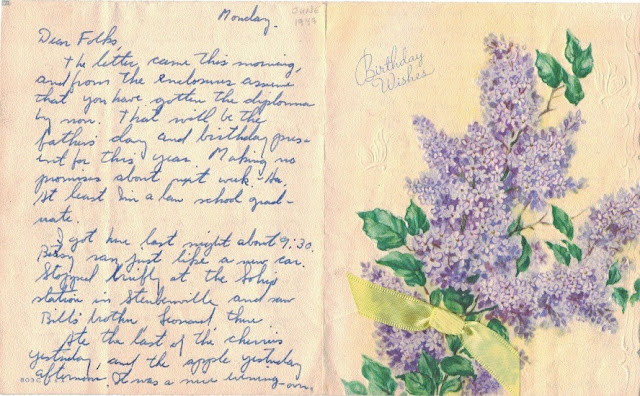 Monday.
JUNE
1947
Dear Folks,
The letter came this morning,
and from the enclosures assume
that you have gotten the diplomma
by now. That will be the
father's day and birthday pres-
ent for this year. Making no
promises about next week. Ha,
At least I'm a law school grad-
uate.
I got here last night about 9:30.
Betsy ran just like a new car.
Stopped briefly at the Sohio
station in Steubenville and saw
Bill's brother, Leonard, there
Ate the last of the cherries
yesterday, and the apple yesterday
afternoon. It was a nice evening
803C
Birthday
Wishes